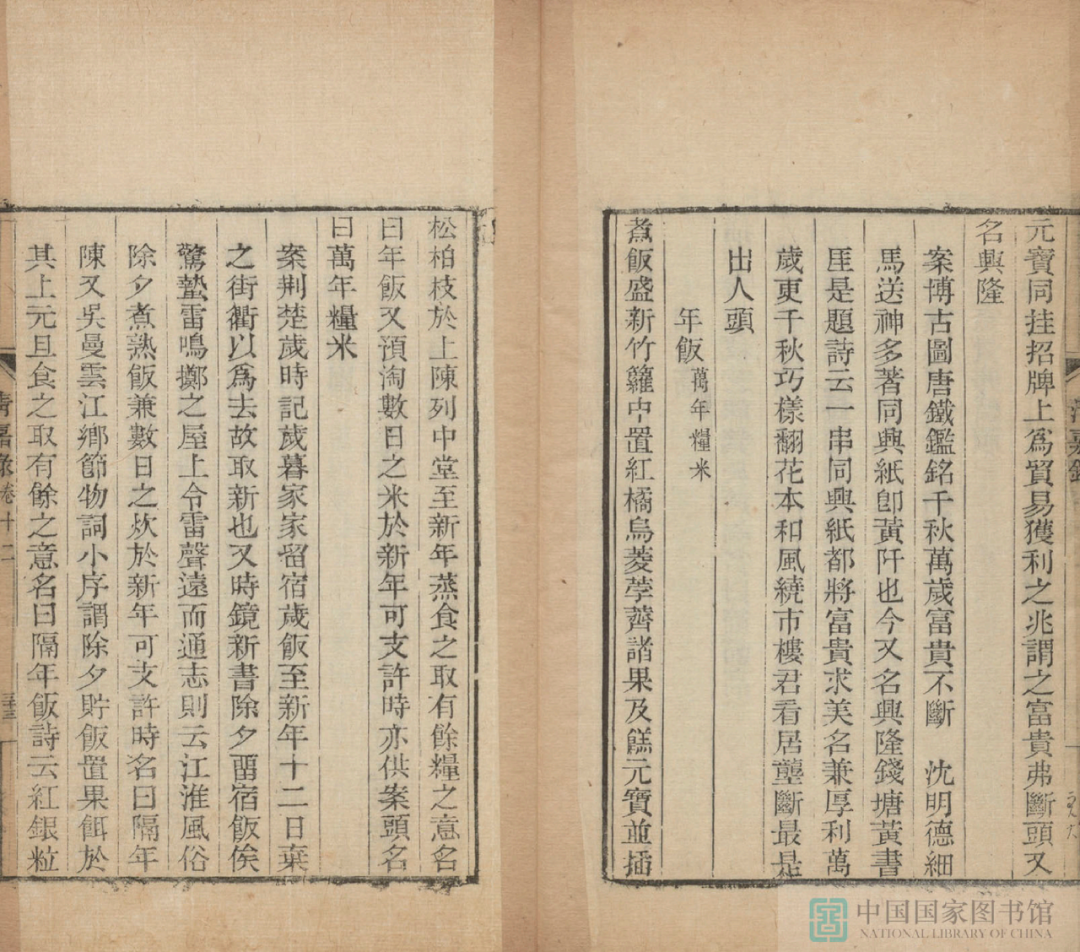 元寶同挂招牌上爲貿易獲利之兆謂之富貴弗斷頭又
名興隆
案博古圖唐鐵鑑銘千秋萬歲富貴不斷　沈明德細
馬送神多著同興紙卽黃阡也今又名興隆錢塘黃書
厓是題詩云一串同興紙都將富貴求美名兼厚利萬
歲更千秋巧樣翻花本和風繞市樓君看居壟斷最是
出人頭
年飯 萬年糧米
煮飯盛新竹籮中置紅橘烏菱荸薺諸果及餻元寶並插
松柏枝於上陳列中堂至新年蒸食之取有餘糧之意名
曰年飯又預淘數日之米於新年可支許時亦供案頭名
曰萬年糧米
案荆楚歲時記歲暮家家留宿歲飯至新年十二日棄
之街衢以爲去故取新也又時鏡新書除夕畱宿飯俟
驚蟄雷鳴擲之屋上令雷聲遠而通志則云江淮風俗
除夕煮熟飯兼數日之炊於新年可支許時名曰隔年
陳又吳曼雲江鄉節物詞小序謂除夕貯飯置果餌於
其上元旦食之取有餘之意名曰隔年飯詩云紅銀粒
清嘉录卷十二
中国国家图书馆
NATIONAL LIBRARY OF CHINA